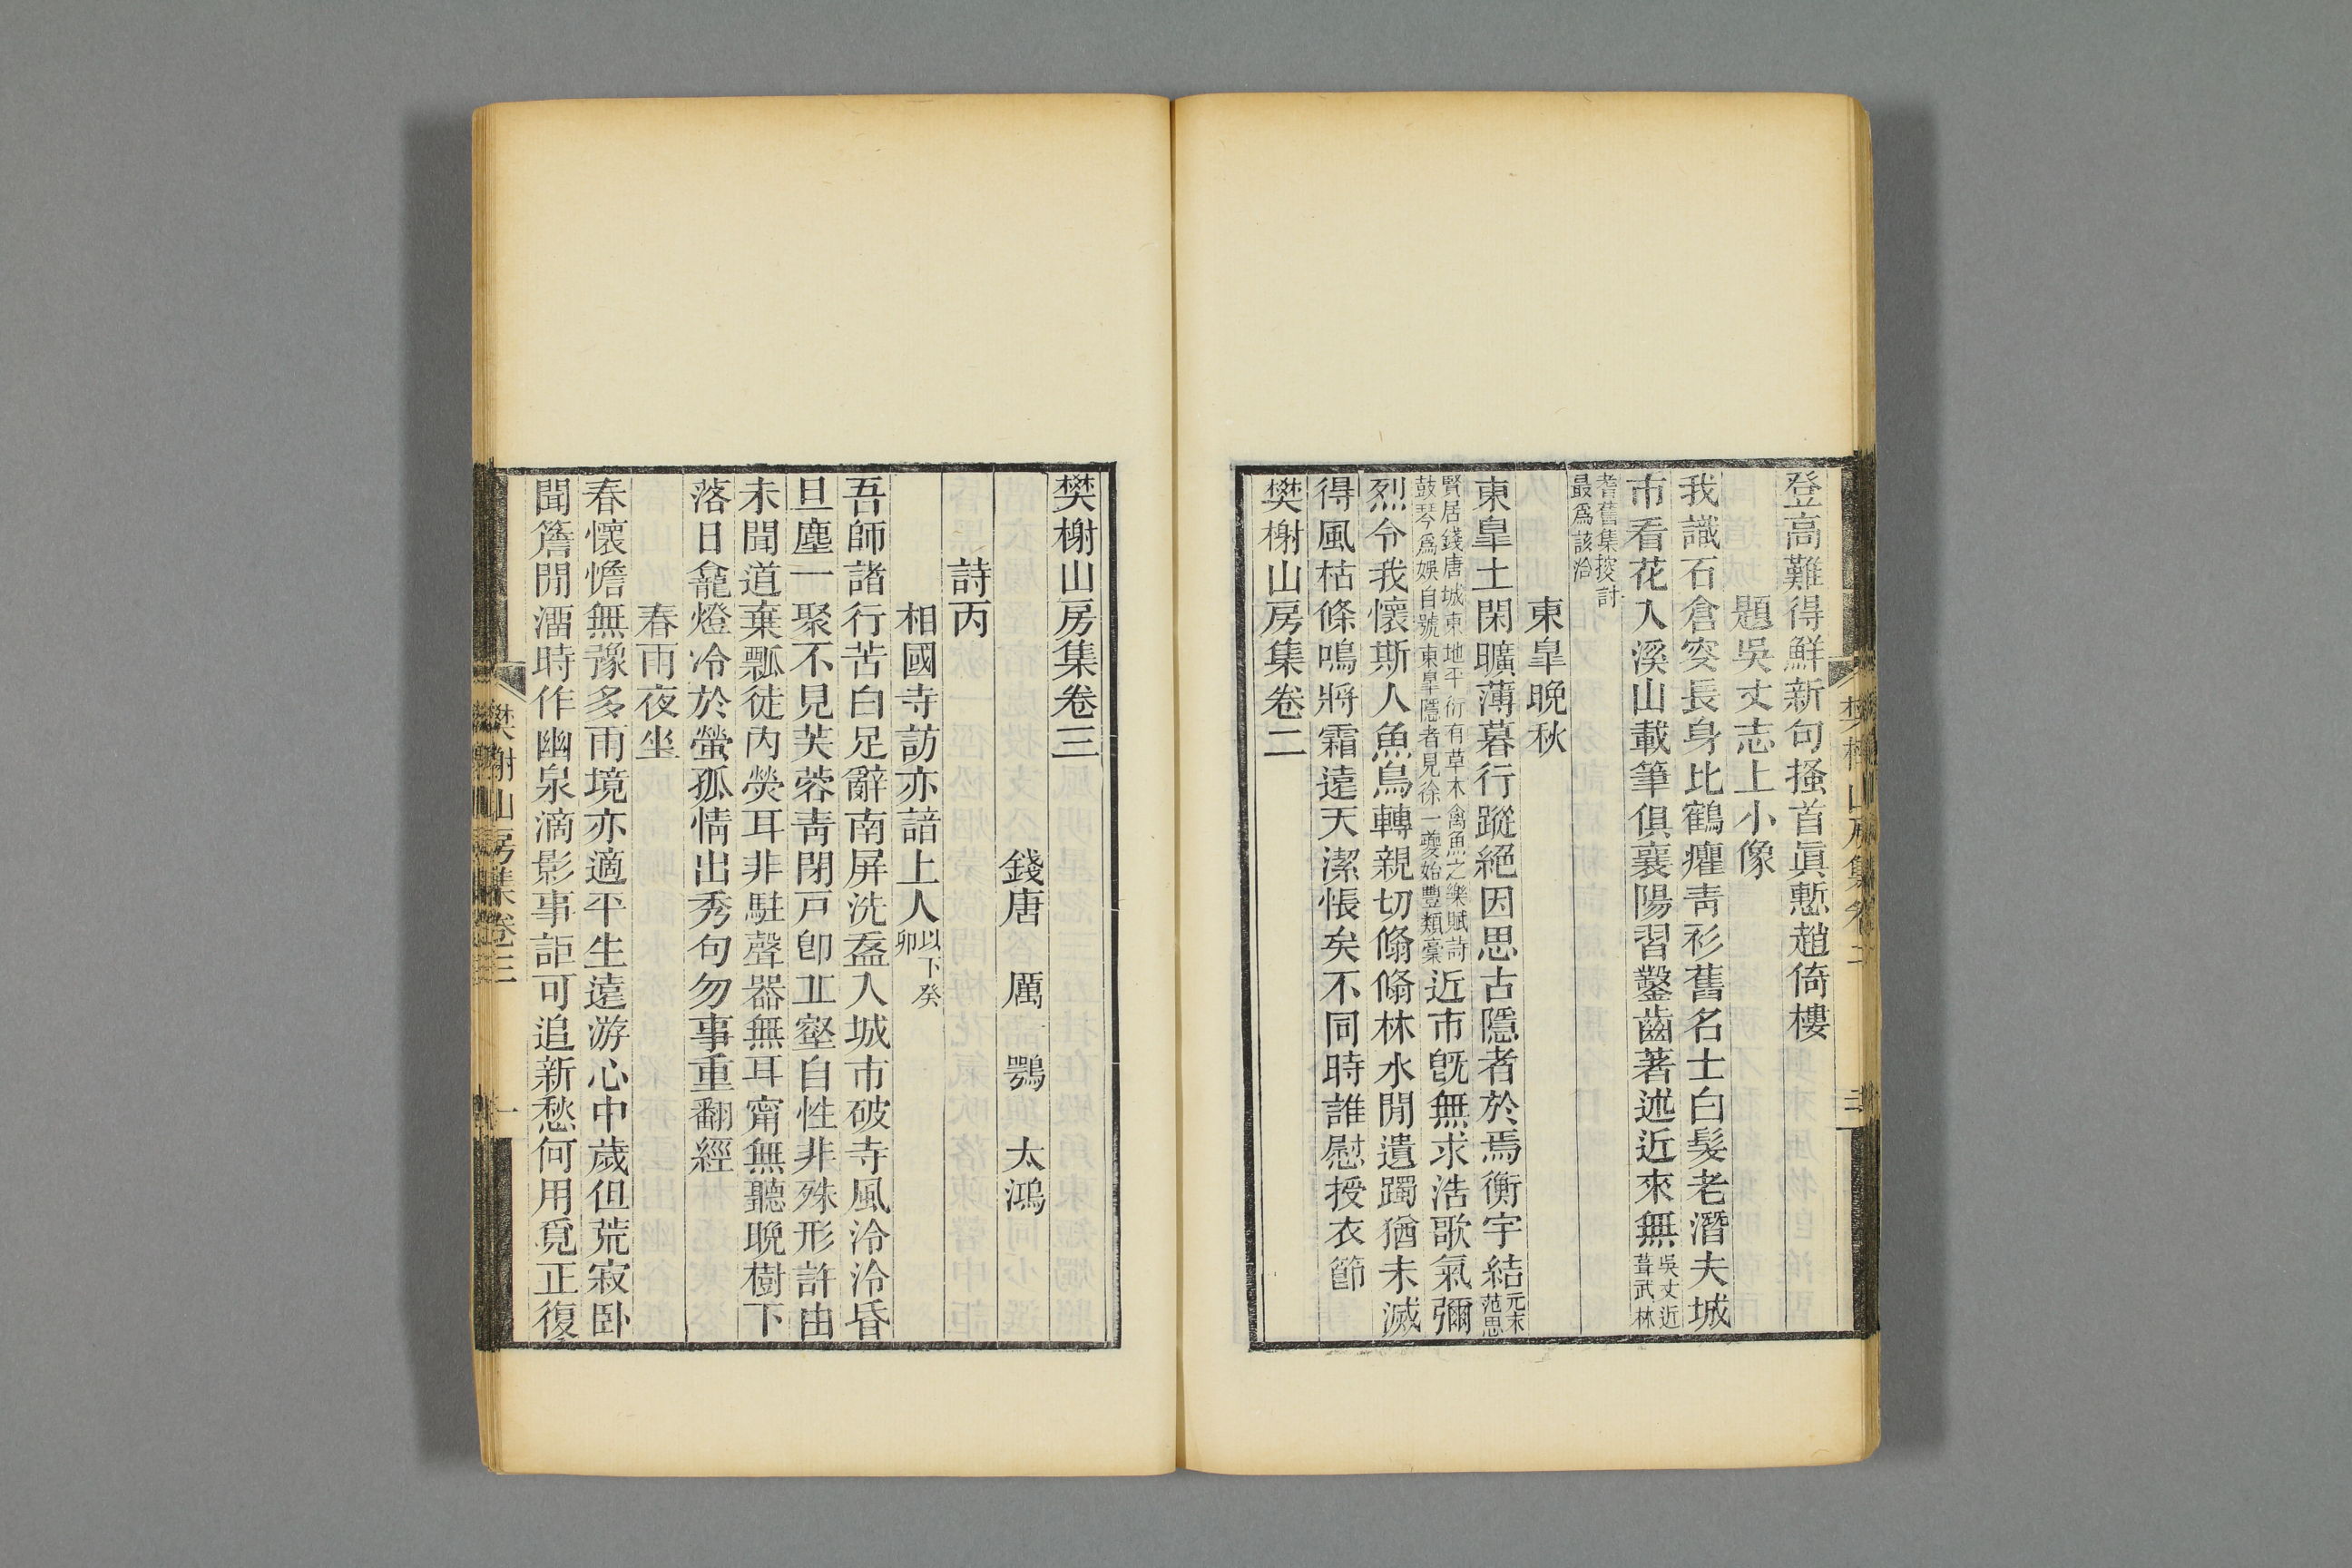 登高難得鮮新句搔首眞慙趙倚樓
題吳丈志上小像
我識石倉突長身比鶴癯靑衫舊名士白髮老潛夫城
市看花入溪山載筆俱襄陽習鑿齒著述近來無吳丈近葺武林
耆舊集搜討最爲該洽
東臯晚秋
東臯土閑曠薄暮行蹤絕因思古隱者於焉衡宇結元末范思
賢居錢唐城東地平衍有草木禽魚之樂賦詩鼓琴爲娛自號東臯隱者見徐一夔始豐類稾近市旣無求浩歌氣彌
烈令我懷斯人魚鳥轉親切翛翛林水閒遺躅猶未滅
得風枯條鳴將霜遠天潔悵矣不同時誰慰授衣節
樊榭山房集卷二
樊榭山房集卷三
錢唐 厲 鶚 太鴻
詩丙
相國寺訪亦諳上人以下癸卯
吾師諸行苦白足辭南屏洗盋入城市破寺風泠泠昏
旦塵一聚不見芙蓉靑閉戸卽丘壑自性非殊形許由
未聞道棄瓢徒內熒耳非駐聲器無耳甯無聽晚樹下
落日龕燈冷於螢孤情出秀句勿事重翻經
春雨夜坐
春懷憺無豫多雨境亦適平生遠游心中歲但荒寂卧
聞簷閒溜時作幽泉滴影事詎可追新愁何用覓正復
樊榭山房集卷三
一